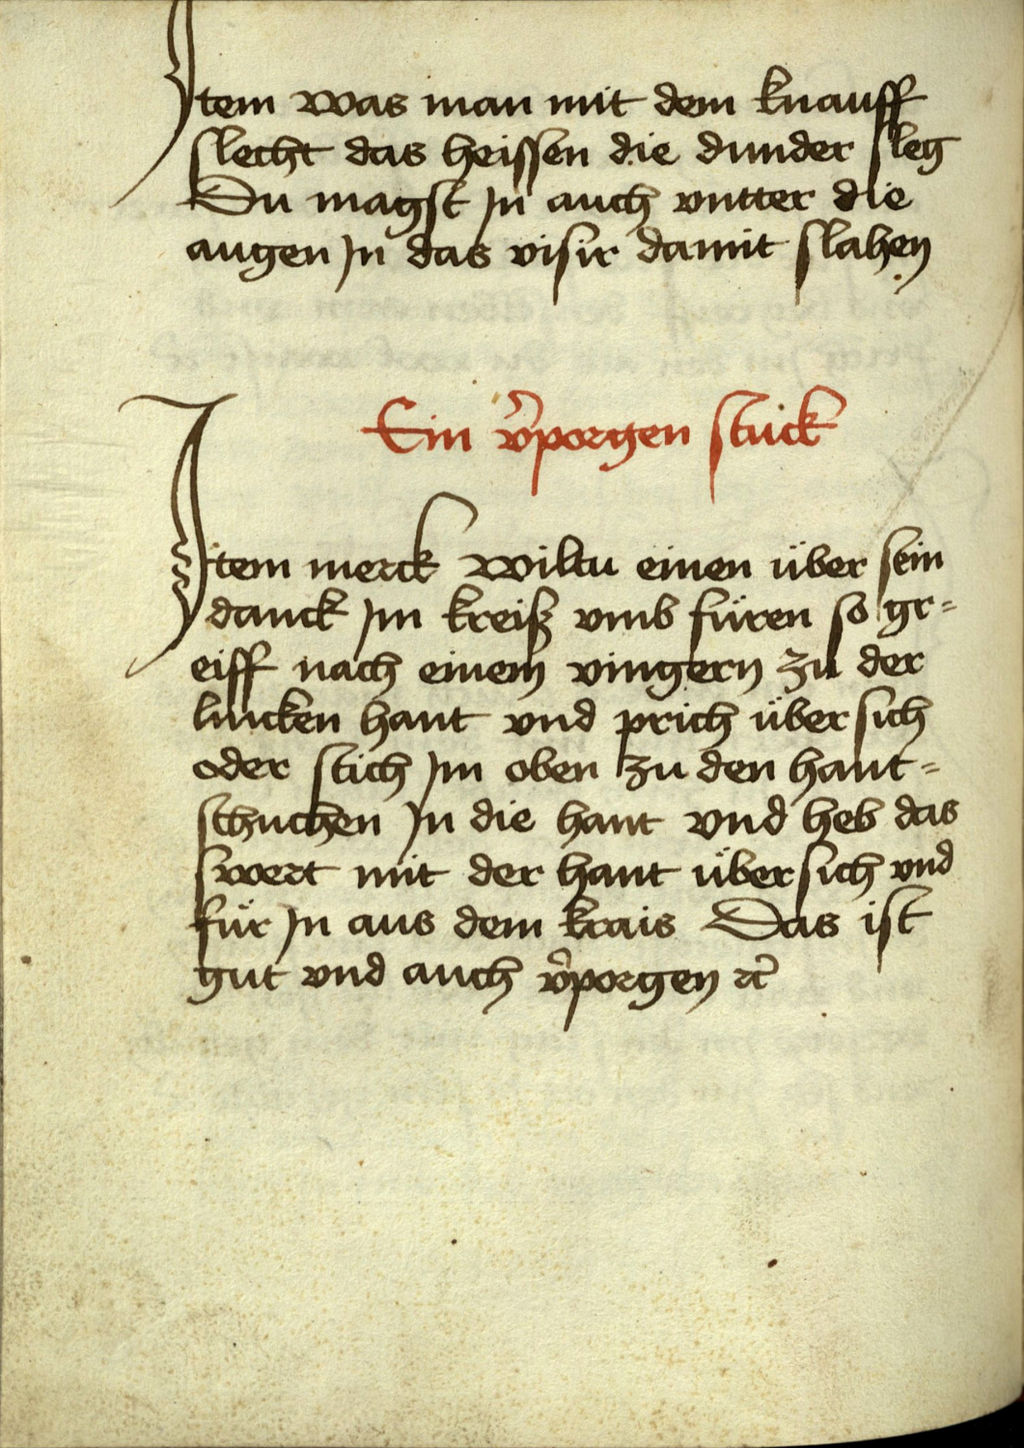 Jtem was man mit dem knauff
slecht das heissen die dunder sleg
Du magst jn auch vntter die
augen jn das visir damit slahen
Ein v̉porgen stuck
Jtem merck wiltu einen über sein
danck jm kreiß vmb füren so gr=
eiff nach einem vingern zu der
lincken hant vnd prich über sich
oder stich jm oben zu den hant=
schuchen jn die hant vnd heb das
swert mit der hant über sich vnd
für jn aus dem krais Das ist
gut vnd auch v̉porgen ꝛc̉